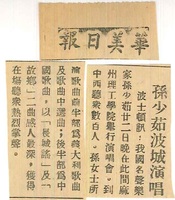 華美日報
孫少茹波城演唱
波士頓訊：我國名音樂
家孫少茹廿二日晚在此間麻
州理工學院舉行演唱會。到
中西聽衆數百人。孫女士所
演歌曲前半部為義大利歌曲
及歌劇中選曲；後半部為中
國歌曲，以「長城謠」及「
故鄉」二曲感人最深，獲得
在場聽衆熱烈掌聲。